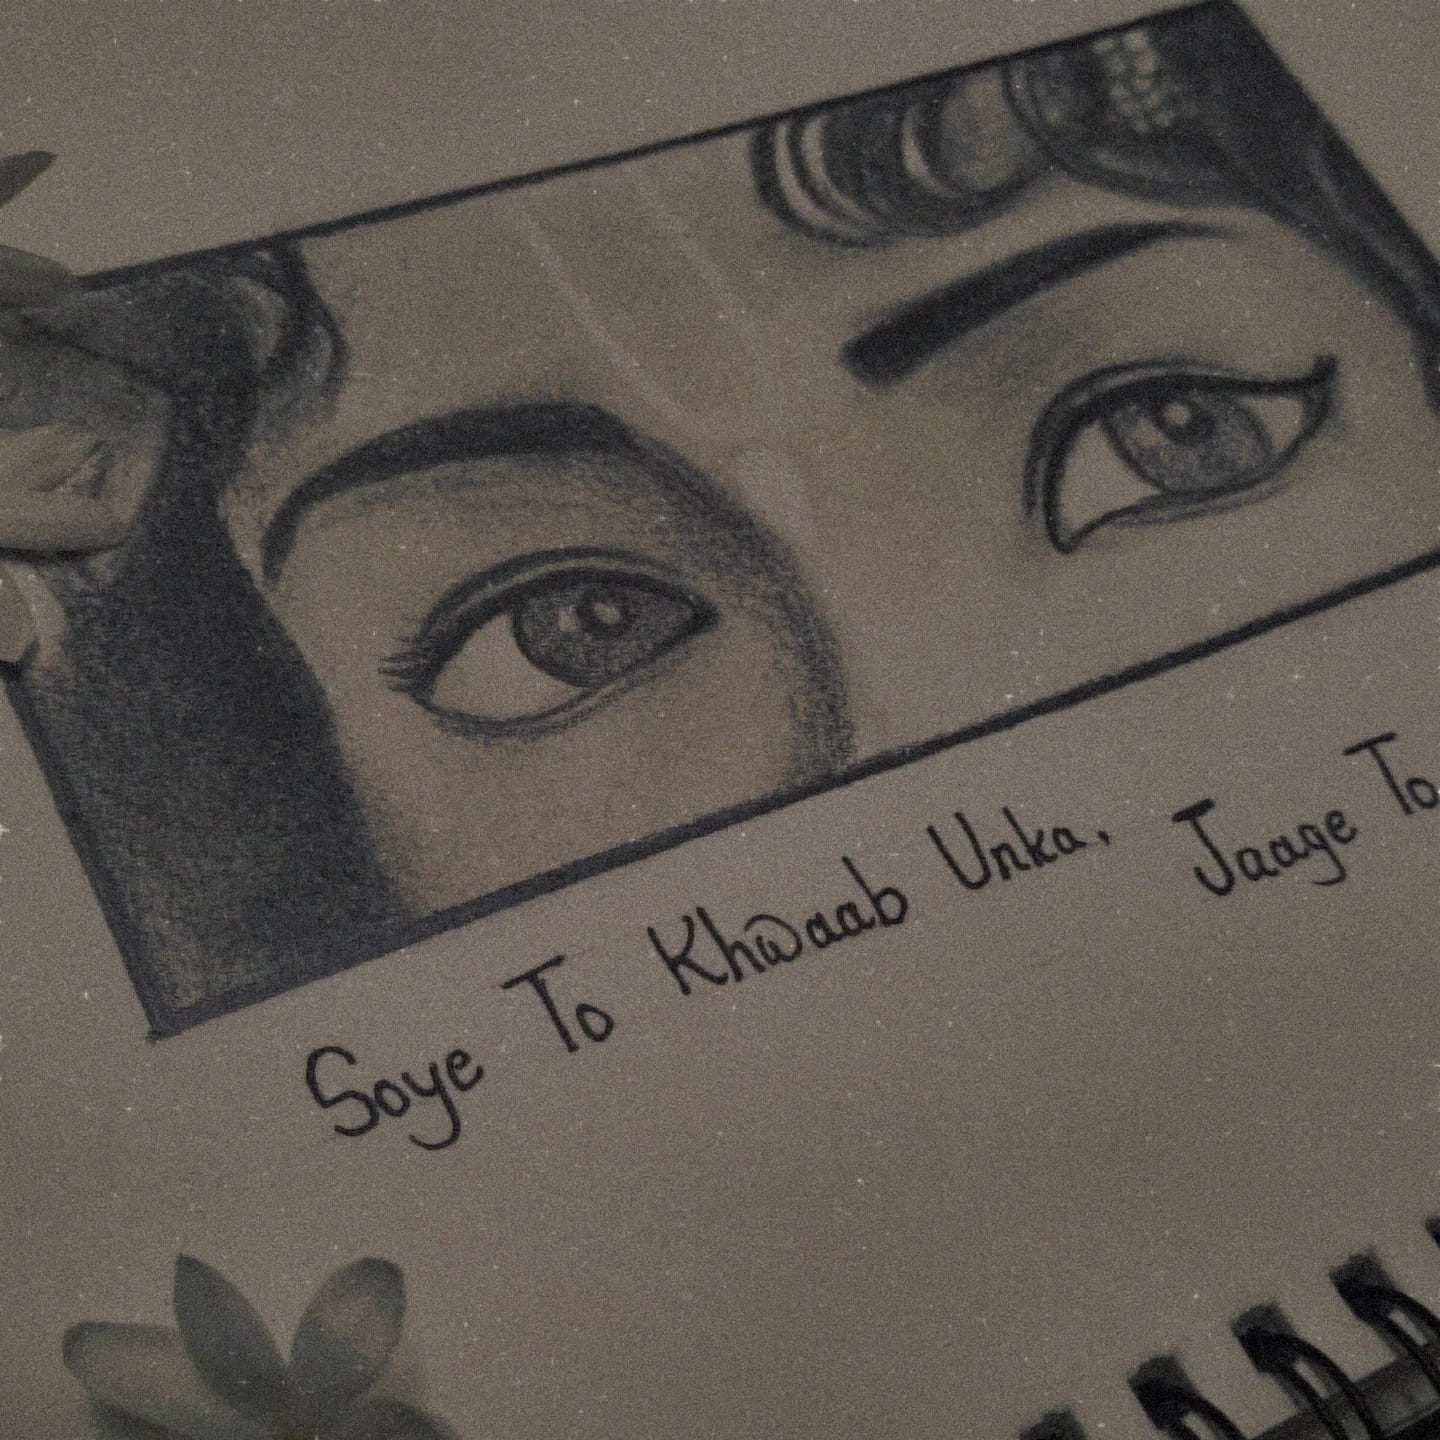 Soye To Khwaab Unka, Jaage To